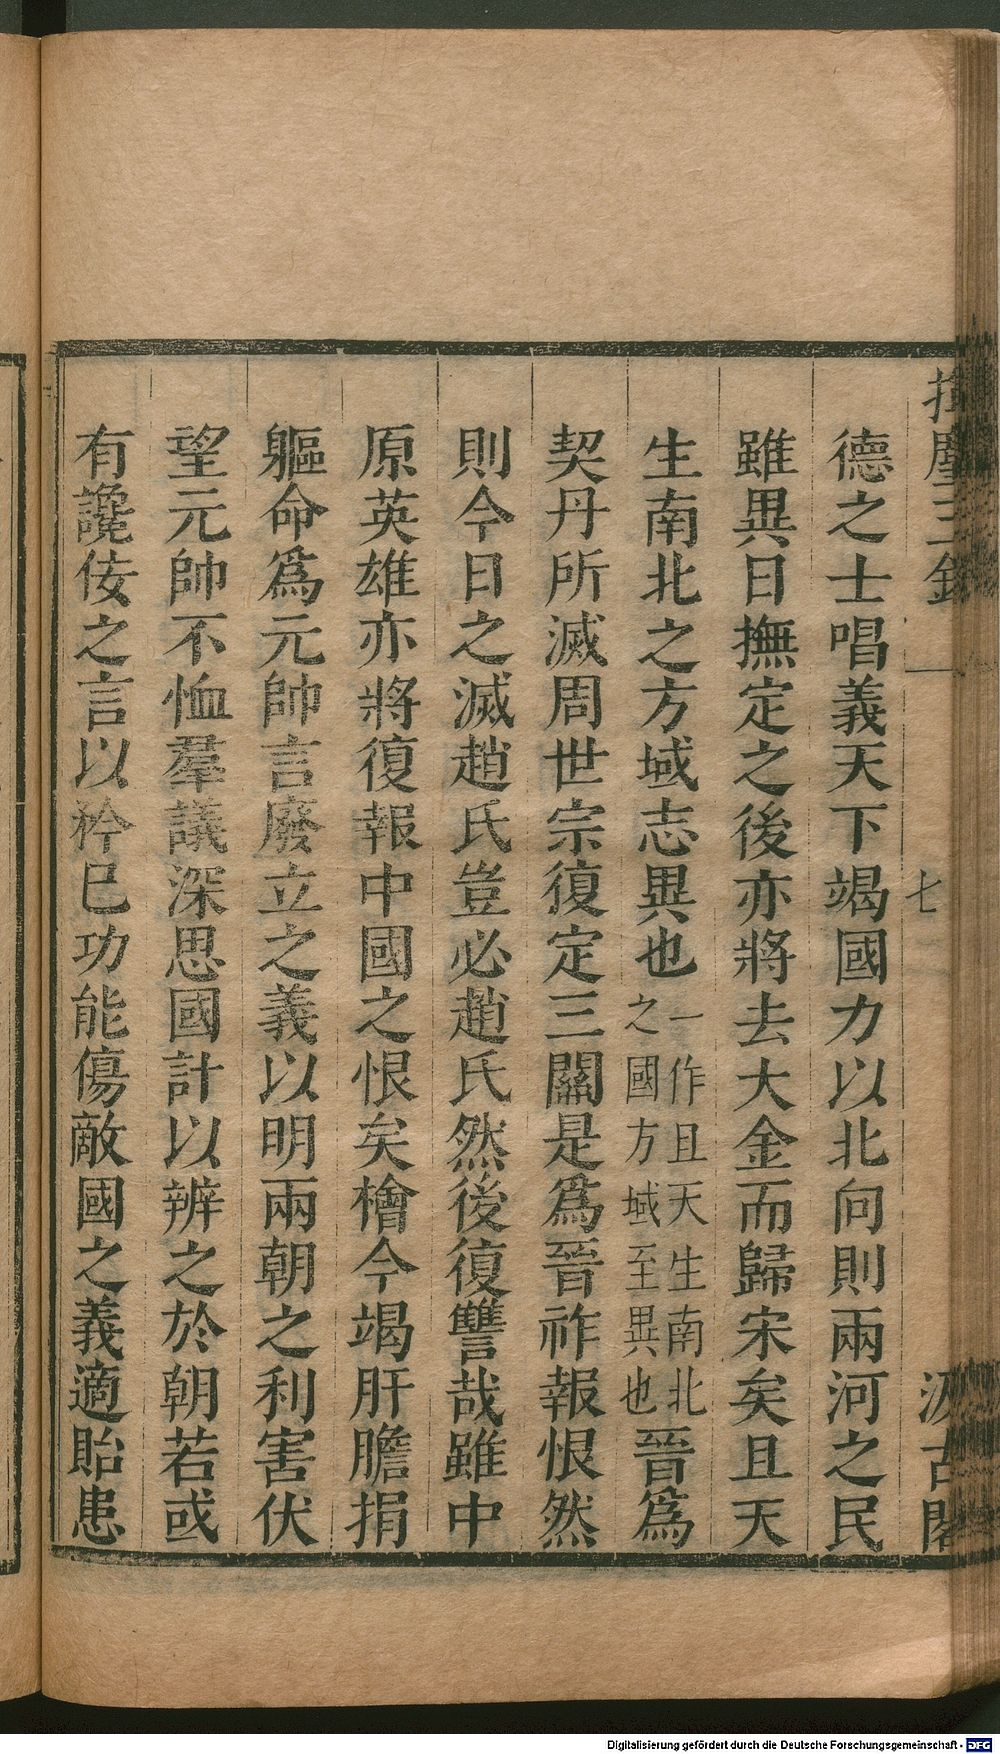 揮麈三錄 一 七 汲古閣
德之士唱義天下竭國力以北向則兩河之民
雖異日撫定之後亦將去大金而歸宋矣且天
生南北之方域志異也一作且天生南北之國方域至異也晉為
契丹所滅周世宗復定三關是爲晉祚報恨然
則今日之滅趙氏豈必趙氏然後復讐哉雖中
原英雄亦將復報中國之恨矣檜今竭肝膽捐
軀命爲元帥言廢立之義以明兩朝之利害伏
望元帥不恤羣議深思國計以辨之於朝若或
有讒佞之言以矜巳功能傷敵國之義適貽患
Digitalisierung gefördert durch die Deutsche Forschungsgemeinschaft - DFG